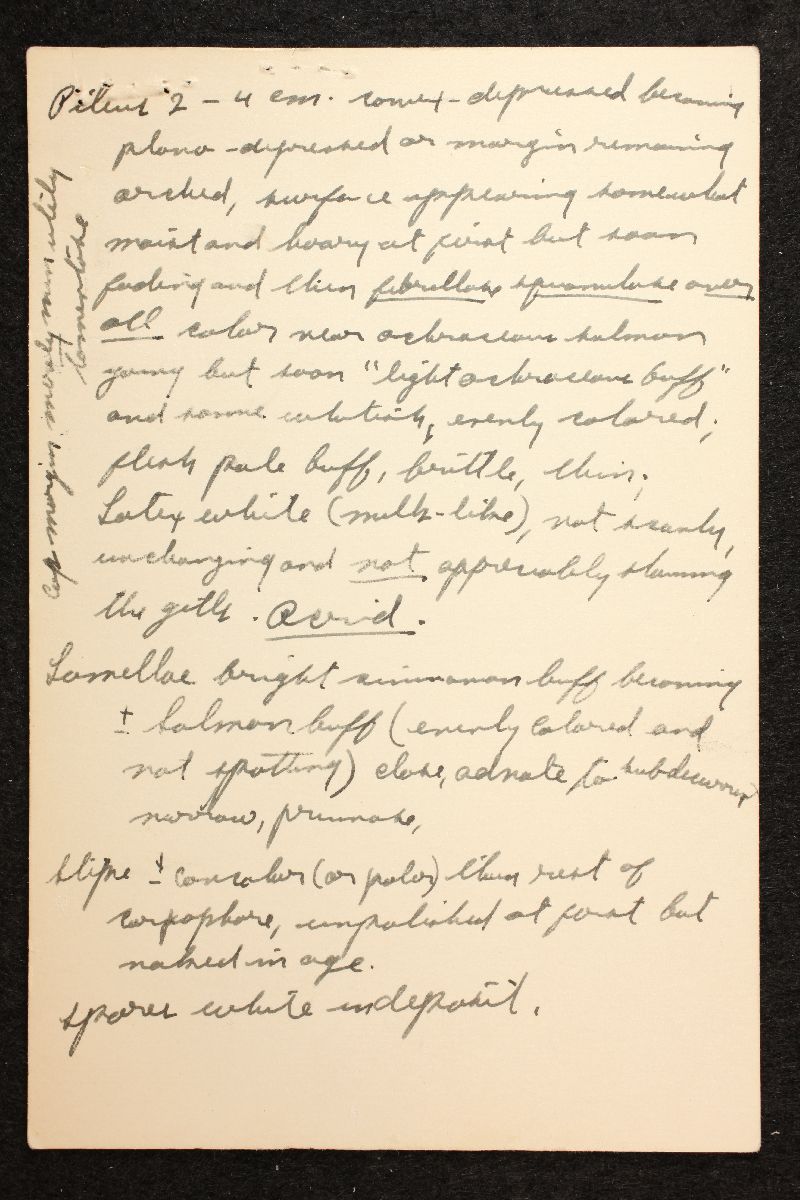 Pileus 2 - 4 cm. convex-depressed becoming
plano-depressed or margin remaining
arched, surface appearing somewhat
moist and hoary at first but soon
fading and then fibrillose squamulose over
all color near ochraceous salmon
young but soon "light ochraceous buff"
and some whitish, evenly colored;
flesh pale buff, brittle, thin;
Latex white (milk-like), not scanty,
unchanging and not appreciably staining
the gills. Acrid.
Lamellae bright cinnamon buff becoming
± salmon buff (evenly colored and
not spotting) close, adnate to subdecurrent
narrow, pruinose,
stipe ± concolor (or paler) than rest of
carpophore, unpolished at first but
naked in age.
spores white in deposit.
Cap margin merely minutely
tomentose